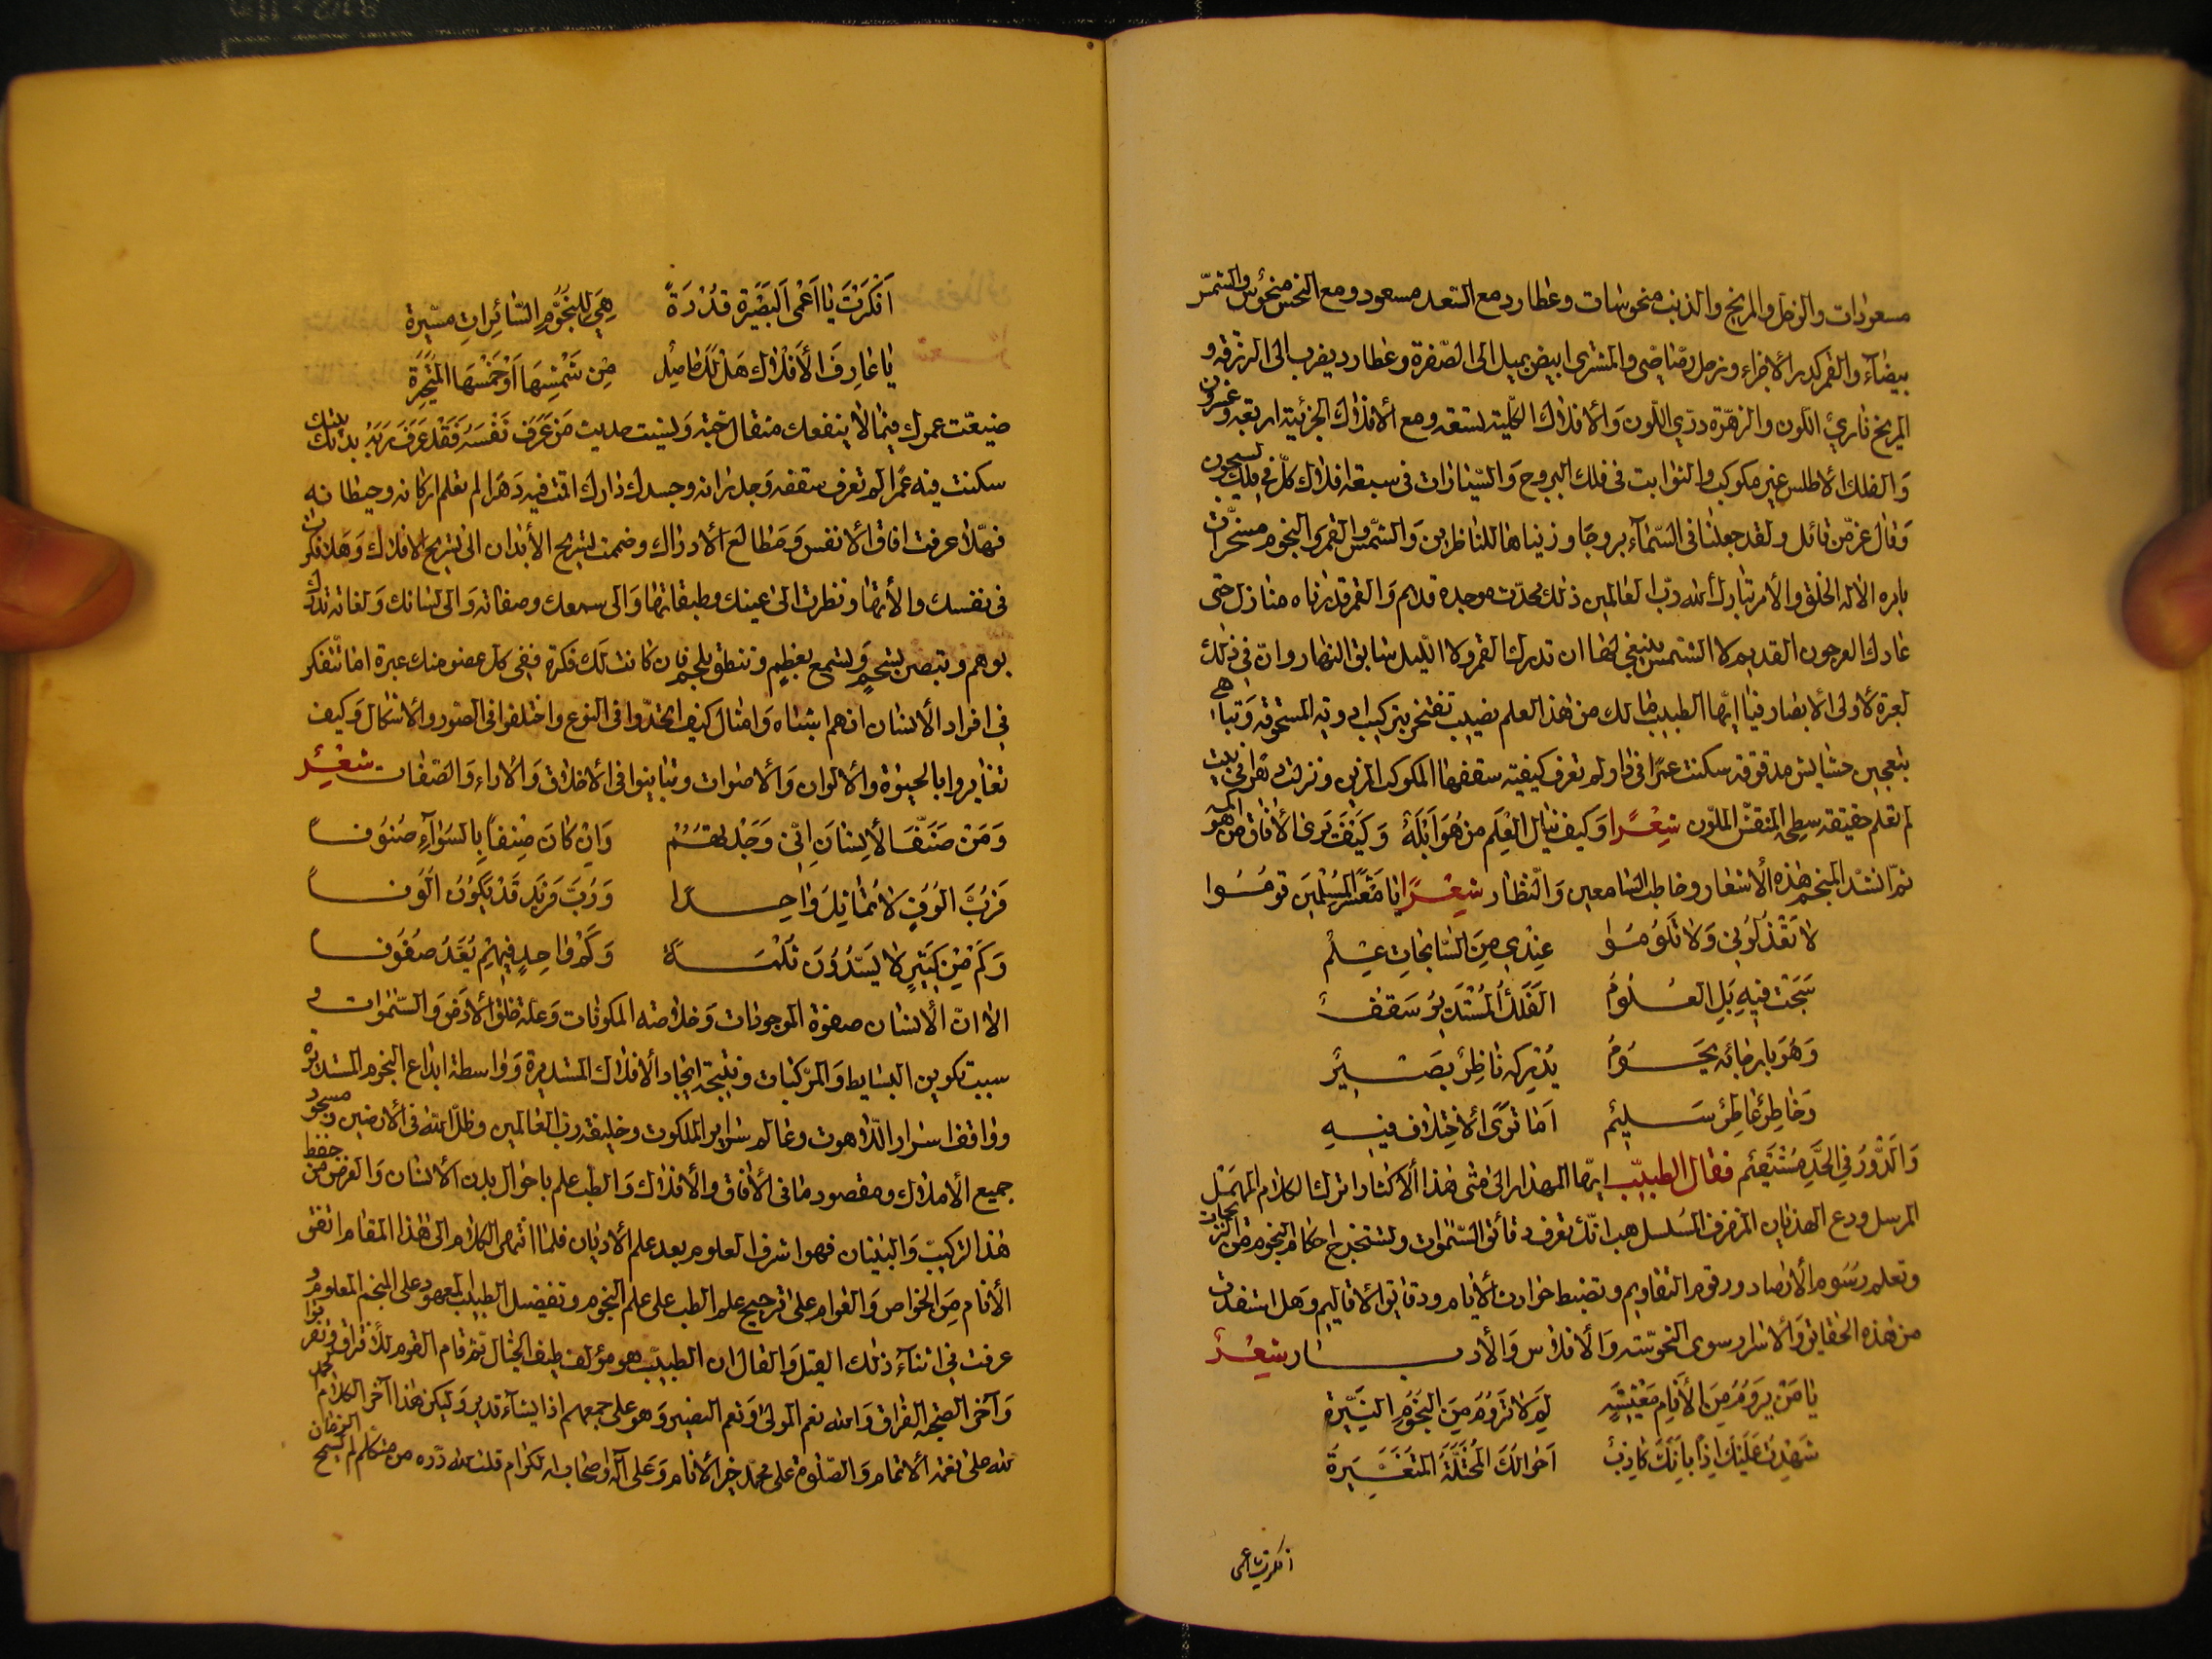 مسعودات والزحل والمريخ والذنب منحوسات وعطارد مع السعد مسعود ومع النحس منحوس والشمس
بيضآء والقمر كدر الأجزاء وزحل رصاصى والمشترى ابيض يميل الى الصفرة وعطارد يضرب الى الزرقه و
المريخ نارى اللون والزهرة درّي اللون والأفلاك الكلية تسعة ومع الأفلاك الجزئية اربعة وعشرون
والفلك الأطلس غير مكوكب والثوابت في فلك البروج والسيارات في سبعة افلاك كلّ في فلك يسبحون
وقال عزّ من قائل ولقد جعلنا فى السّمآء بروجا وزيناها للناظرين والشمس والقمر والنجوم مسخّرات
بامره الا له الخلق والأمر تبارك الله ربّ العالمين ذلك محدث موجده قديم والقمر قدرناه منازل حتى
عاد كالعرجون القديم لا الشمس ينبغي لها ان تدرك القمر ولا الليل سابق النهار وان فى ذلك
لعبرة لأولى الأبصار فيا ايّها الطبيب ما لك من هذا العلم نصيب تفتخر بتركيب ادوية المستحوقه وتباهى
بتعجين حشايش مدقوقه سكنت عمرا فى دار لم تعرف كيفية سقفها المكوكب المزين ونزلت دهرا فى بيت
لم تعلم حقيقه سطحه المنقش الملون شعرا وكيف ينال العلم من هو ابله وكيف يرى الآفاق من هو اكمه
ثمّ انشد المنجم هذه الأشعار وخاطب السامعين والنظار شعرا يا معشر المسلمين قوموا
لا تعذلوني ولا تلوموا عندي من السابحات علم
سبحت فيه بل العلوم الفلك المستدير سقف
وهو بارجائه يحوم يدركه ناظر بصير
وخاطر عاطر سليم اما ترى الأختلاف فيه
والدّور في الحدّ مستقيم فقال الطبيب ايّها المهذار الى متى هذا الأكثار اترك الكلام المهمل
المرسل ودع الهذيان المزخرف المسلسل هب انّك تعرف دقائق السّموات وتستخرج احكام النجوم من الزيجات
وتعلم رسوم الأرصاد ورقوم التقاويم وتضبط حوادث الأيام ودقايق الأقاليم وهل استفدت
من هذه الحقايق والأسرار سوى النحوسة والأفلاس والأدبار شعر
يا من يروم من الأنام معيشة لم لا تروم من النجوم النيّرة
شهدت عليك اذا بانك كاذب احوالك المختلّة المتغيرة
انكرت يا اعمى
أنكرت يا اعمى البصيرة قدرة هي للنجوم السّائرات مسيّرة
يا عارف الأفلاك هل لك طائل من شمسها او خمسها المتحيرة
ضيعت عمرك فيما لا ينفعك مثقال حبّة ونسيت حديث من عرف نفسه فقد عرف ربّه بدنك بيتك
سكنت فيه عمرا لم تعرف سقفه وجدرانه وجسدك دارك اقمت فيه دهرا لم تعلم اركانه وحيطانه
فهلا عرفت افاق الأنفس ومطالع الأدراك وضممت تشريح الأبدان الى تشريح الافلاك وهلا فكرت
فى نفسك والأتها ونظرت الى عينك وطبقاتها والى سمعك وصفاته والى لسانك ولغاته تدرك
بوهم وتبصر بشحم وتسمع بعظم وتنطق بلحم فان كانت لك فكرة ففى كل عضو منك عبرة اما تتفكر
في افراد الأنسان اذ هم اشباه وامثال كيف اتحدّوا فى النوع واختلفوا فى الصور والأشكال وكيف
تغايروا بالحيوة والألوان والأصوات وتباينوا فى الأخلاق والأراء والصّفات شعر
ومن صنّف الأنسان انّى وجدتهم وان كان صنفا بالسوآء صنوفا
فربّ الوف لا تماثل واحدا وربّ فريد قد يكون الوفا
وكم من كثير لا يسدّون ثلمة وكم واحد فيهم يعدّ صفوفا
الا انّ الأنسان صفوة الموجودات وخلاصه المكونات وعلة خلق الأرض والسّموات و
سبب تكوين البسايط والمركبات ونتيجة ايجاد الأفلاك المستديرة وواسطة ابداع النجوم المستديرة
وواقف اسرار اللاهوت وعالم سراير الملكوت وخليفه رب العالمين وظل الله فى الأرضين ومسجود
جميع الأملاك ومقصود ما فى الأفاق والأفلاك والطب علم باحوال بدن الأنسان والغرض من حفظ
هذا التركيب والبنيان فهو اشرف العلوم بعد علم الأديان فلما انتهى الكلام الى هذا المقام اتفق
الأنام من الخواص والعوام على ترجيح علم الطب على علم النجوم وتفضيل الطبيب المعهود على المنجم المعلوم و
عرفت في اثنآء ذلك القيل والقال ان الطبيب هو مؤلف طيف الخيال ثم قام القوم للأفتراق وتفرقوا
وآخر الصحبة الفراق والله نعم المولى ونعم النصير وهو على جمعهم اذا يشآء قدير وليكن هذا آخر الكلام والحمد
لله على نعمة الاتمام والصّلوة على محمّد خير الأنام وعلى آله واصحابه الكرام قلت لله درّه من متكلّم لم يسمح الزمان